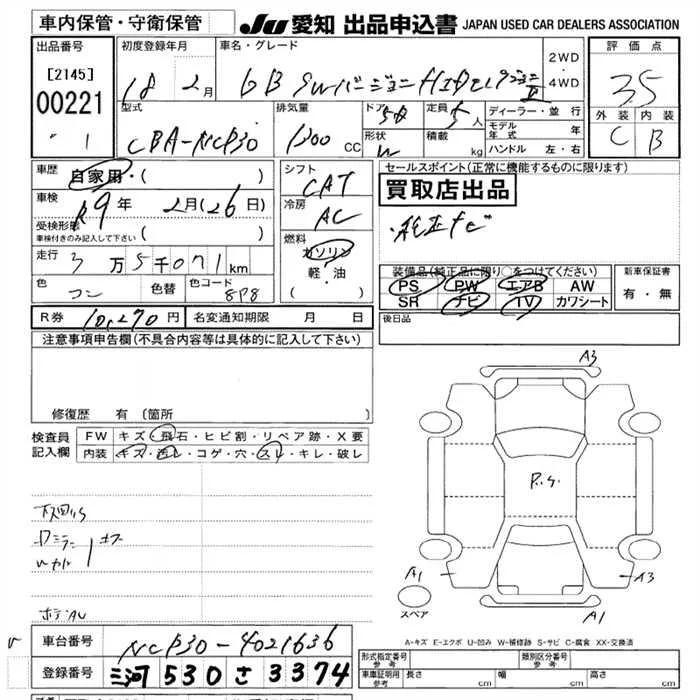 車内保管・守衛保管
JU 愛知 出品申込書 JAPAN USED CAR DEALERS ASSOCIATION
出品番号
[2145]
00221
1
初度登録年月
18 2月
車名・グレード
bB SWバージョン HIDセレクション II
2WD ・ 4WD
評価点
3.5
外装 内装
C B
型式
CBA-NCP30
排気量
1300 CC
ドア 5D
形状 W
定員 5人
積載 kg
ディーラー・並行
モデル年式 年
ハンドル 左・右
車歴 自家用・( )
車検 R9年 2月(26日)
受検形形
車検付きのみ記入して下さい ( )
走行 3万5千071km
色 コン 色替 色コード 8P8
シフト CAT
冷房 AC
燃料 ガソリン 軽・油 ( )
セールスポイント(正常に機能するものに限ります)
買取店出品
・純正ナビ
装備品(純正品に限り○をつけてください)
PS PW エアB AW
SR ナビ TV カワシート
新車保証書
有・無
R券 10,270円 名変通知期限 月 日
後日品
注意事項申告欄(不具合内容等は具体的に記入して下さい)
修復歴 有 [箇所
検査員記入欄
FW キズ・飛石・ヒビ割・リペア跡・X要
内装 キズ・汚レ・コゲ・穴・スレ・キレ・破レ
下回りS
ドアミラー
キズ
ボデーAU
A3
P.S
A1
A3
A1
スペア
A-キズ E-エクボ U-凹み W-補修跡 S-サビ C-腐食 XX-交換済
車台番号 NCP30-4021636
登録番号 三河 530 さ 3374
形式指定番号 参考
類別区分番号 参考
車庫証明用参考 長さ cm 幅 cm 高さ cm